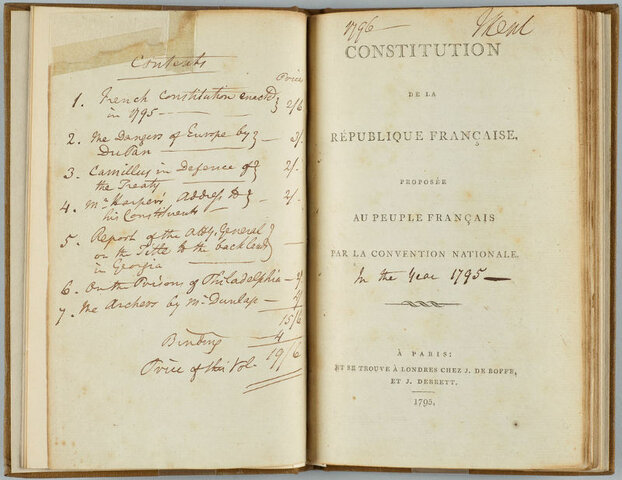 Contents
Price
1. French Constitution enacted
in 1795 2/6
2. The Dangers of Europe by
Du Pan 3/.
3. Camillus in Defence of
the Treaty 2/.
4. Mr Harper's Address to
his Constituents 2/.
5. Report of the Atty General
on the Title to the back land
in Georgia
6. On the Prisons of Philadelphia
7. The Archers by Mr Dunlap
15/6
Binding 4
Price of this Vol. 19/6
1796
CONSTITUTION
DE LA
RÉPUBLIQUE FRANÇAISE,
PROPOSÉE
AU PEUPLE FRANÇAIS
PAR LA CONVENTION NATIONALE.
In the Year 1795
À PARIS:
ET SE TROUVE À LONDRES CHEZ J. DE BOFFE,
ET J. DEBRETT.
1795.